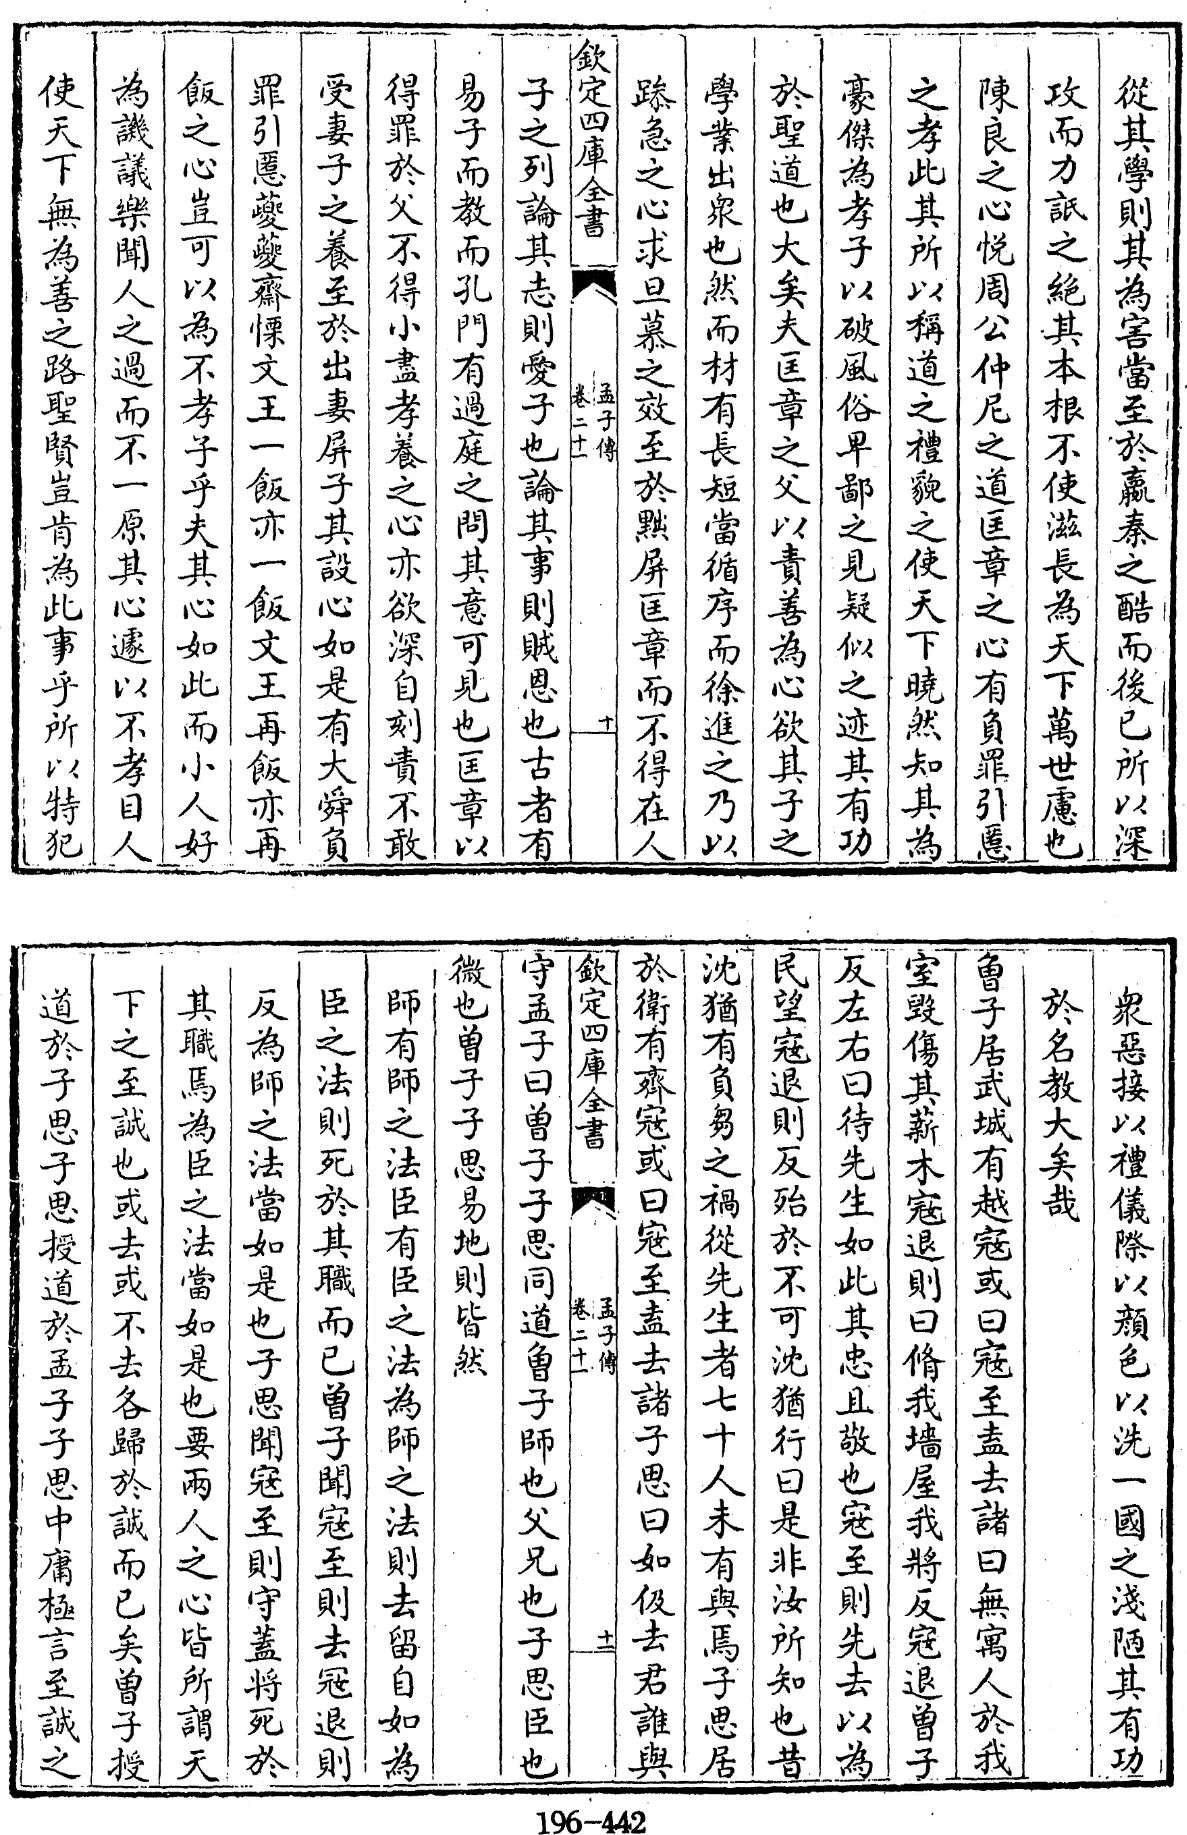 從其學則其為害當至於嬴秦之酷而後已所以深
攻而力詆之絕其本根不使滋長為天下萬世慮也
陳良之心悅周公仲尼之道匡章之心有負罪引慝
之孝此其所以稱道之禮貌之使天下曉然知其為
豪傑為孝子以破風俗卑鄙之見疑似之迹其有功
於聖道也大矣夫匡章之父以責善為心欲其子之
學業出衆也然而材有長短當循序而徐進之乃以
躁急之心求旦慕之效至於黜屏匡章而不得在人
欽定四庫全書
孟子傳
卷二十一
十
子之列論其志則愛子也論其事則賊恩也古者有
易子而教而孔門有過庭之問其意可見也匡章以
得罪於父不得小盡孝養之心亦欲深自刻責不敢
受妻子之養至於出妻屏子其設心如是有大舜負
罪引慝夔夔齋慄文王一飯亦一飯文王再飯亦再
飯之心豈可以為不孝子乎夫其心如此而小人好
為譏議樂聞人之過而不一原其心遽以不孝目人
使天下無為善之路聖賢豈肯為此事乎所以特犯
衆惡接以禮儀際以顏色以洗一國之淺陋其有功
於名教大矣哉
曾子居武城有越寇或曰寇至盍去諸曰無寓人於我
室毀傷其薪木寇退則曰脩我墻屋我將反寇退曾子
反左右曰待先生如此其忠且敬也寇至則先去以為
民望寇退則反殆於不可沈猶行曰是非汝所知也昔
沈猶有負芻之禍從先生者七十人未有與焉子思居
於衛有齊寇或曰寇至盍去諸子思曰如伋去君誰與
欽定四庫全書
孟子傳
卷二十一
十一
守孟子曰曾子子思同道曾子師也父兄也子思臣也
微也曾子子思易地則皆然
師有師之法臣有臣之法為師之法則去留自如為
臣之法則死於其職而已曾子聞寇至則去寇退則
反為師之法當如是也子思聞寇至則守蓋將死於
其職焉為臣之法當如是也要兩人之心皆所謂天
下之至誠也或去或不去各歸於誠而已矣曾子授
道於子思子思授道於孟子子思中庸極言至誠之
196-442